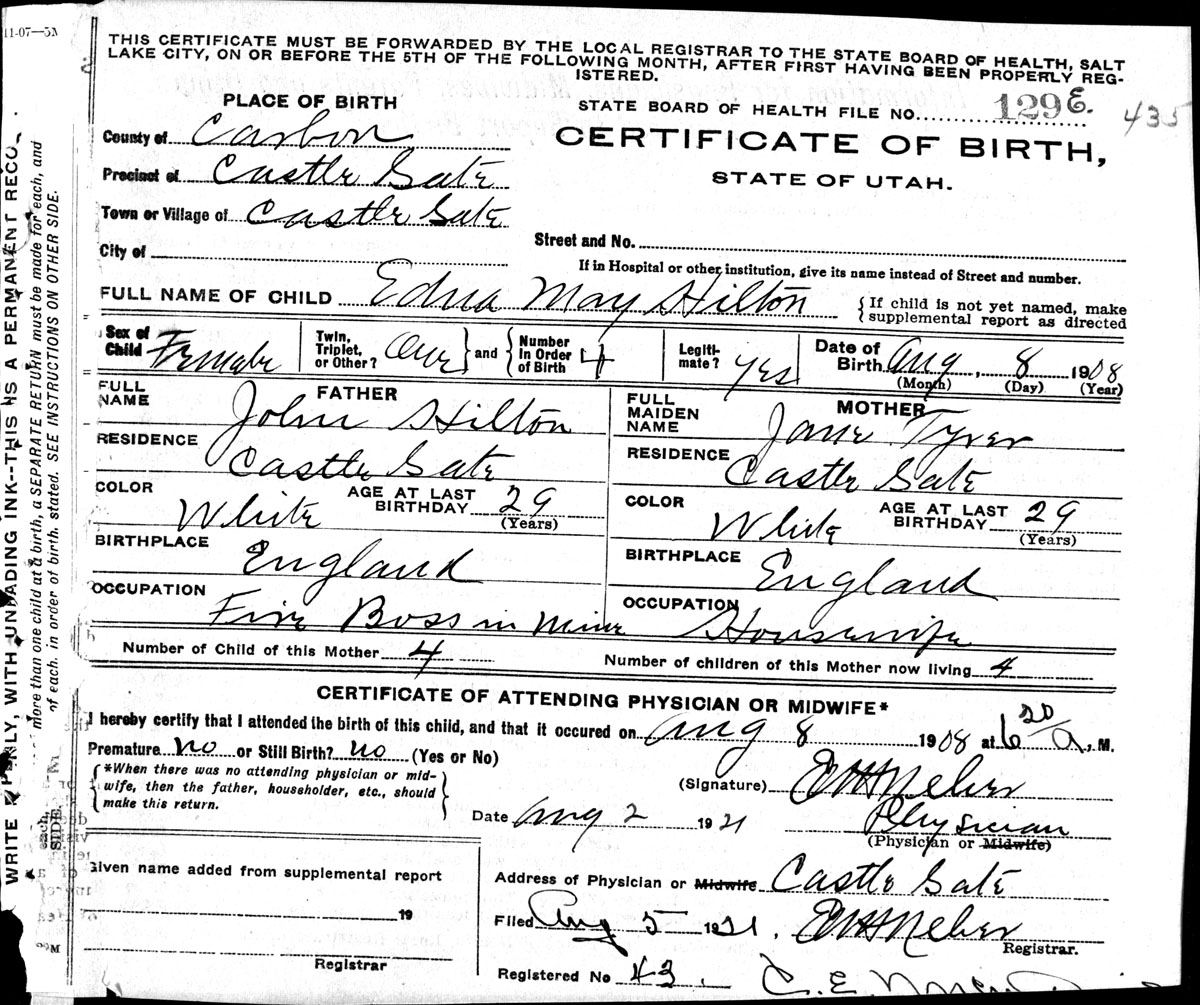 11-07—5M
THIS CERTIFICATE MUST BE FORWARDED BY THE LOCAL REGISTRAR TO THE STATE BOARD OF HEALTH, SALT
LAKE CITY, ON OR BEFORE THE 5TH OF THE FOLLOWING MONTH, AFTER FIRST HAVING BEEN PROPERLY REG-
ISTERED.
PLACE OF BIRTH
STATE BOARD OF HEALTH FILE NO. 129 E. 435
County of Carbon
CERTIFICATE OF BIRTH,
Precinct of Castle Gate
STATE OF UTAH.
Town or Village of Castle Gate
City of
Street and No.
If in Hospital or other institution, give its name instead of Street and number.
FULL NAME OF CHILD Edna May Hilton
If child is not yet named, make
supplemental report as directed
Sex of Child Female
Twin, Triplet, or Other? One and Number In Order of Birth 4
Legiti-mate? yes
Date of Birth Aug 8 1908
(Month) (Day) (Year)
FATHER
FULL NAME John Hilton
RESIDENCE Castle Gate
COLOR White
AGE AT LAST BIRTHDAY 29
(Years)
BIRTHPLACE England
OCCUPATION Fire Boss in Mine
MOTHER
FULL MAIDEN NAME Jane Tyrer
RESIDENCE Castle Gate
COLOR White
AGE AT LAST BIRTHDAY 29
(Years)
BIRTHPLACE England
OCCUPATION Housewife
Number of Child of this Mother 4
Number of children of this Mother now living 4
CERTIFICATE OF ATTENDING PHYSICIAN OR MIDWIFE*
I hereby certify that I attended the birth of this child, and that it occured on Aug 8 1908 at 6 20 A. M.
Premature no or Still Birth? no (Yes or No)
*When there was no attending physician or mid-
wife, then the father, householder, etc., should
make this return.
(Signature) E H Neher
Date Aug 2 1921
Physician
(Physician or Midwife)
Given name added from supplemental report
19
Registrar
Address of Physician or Midwife Castle Gate
Filed Aug 5 1921. E H Neher
Registrar.
Registered No 43.
C. E.
WRITE PLAINLY, WITH UNFADING INK--THIS IS A PERMANENT RECO
more than one child at a birth, a SEPARATE RETURN must be made for each, and
of each, in order of birth, stated. SEE INSTRUCTIONS ON OTHER SIDE.